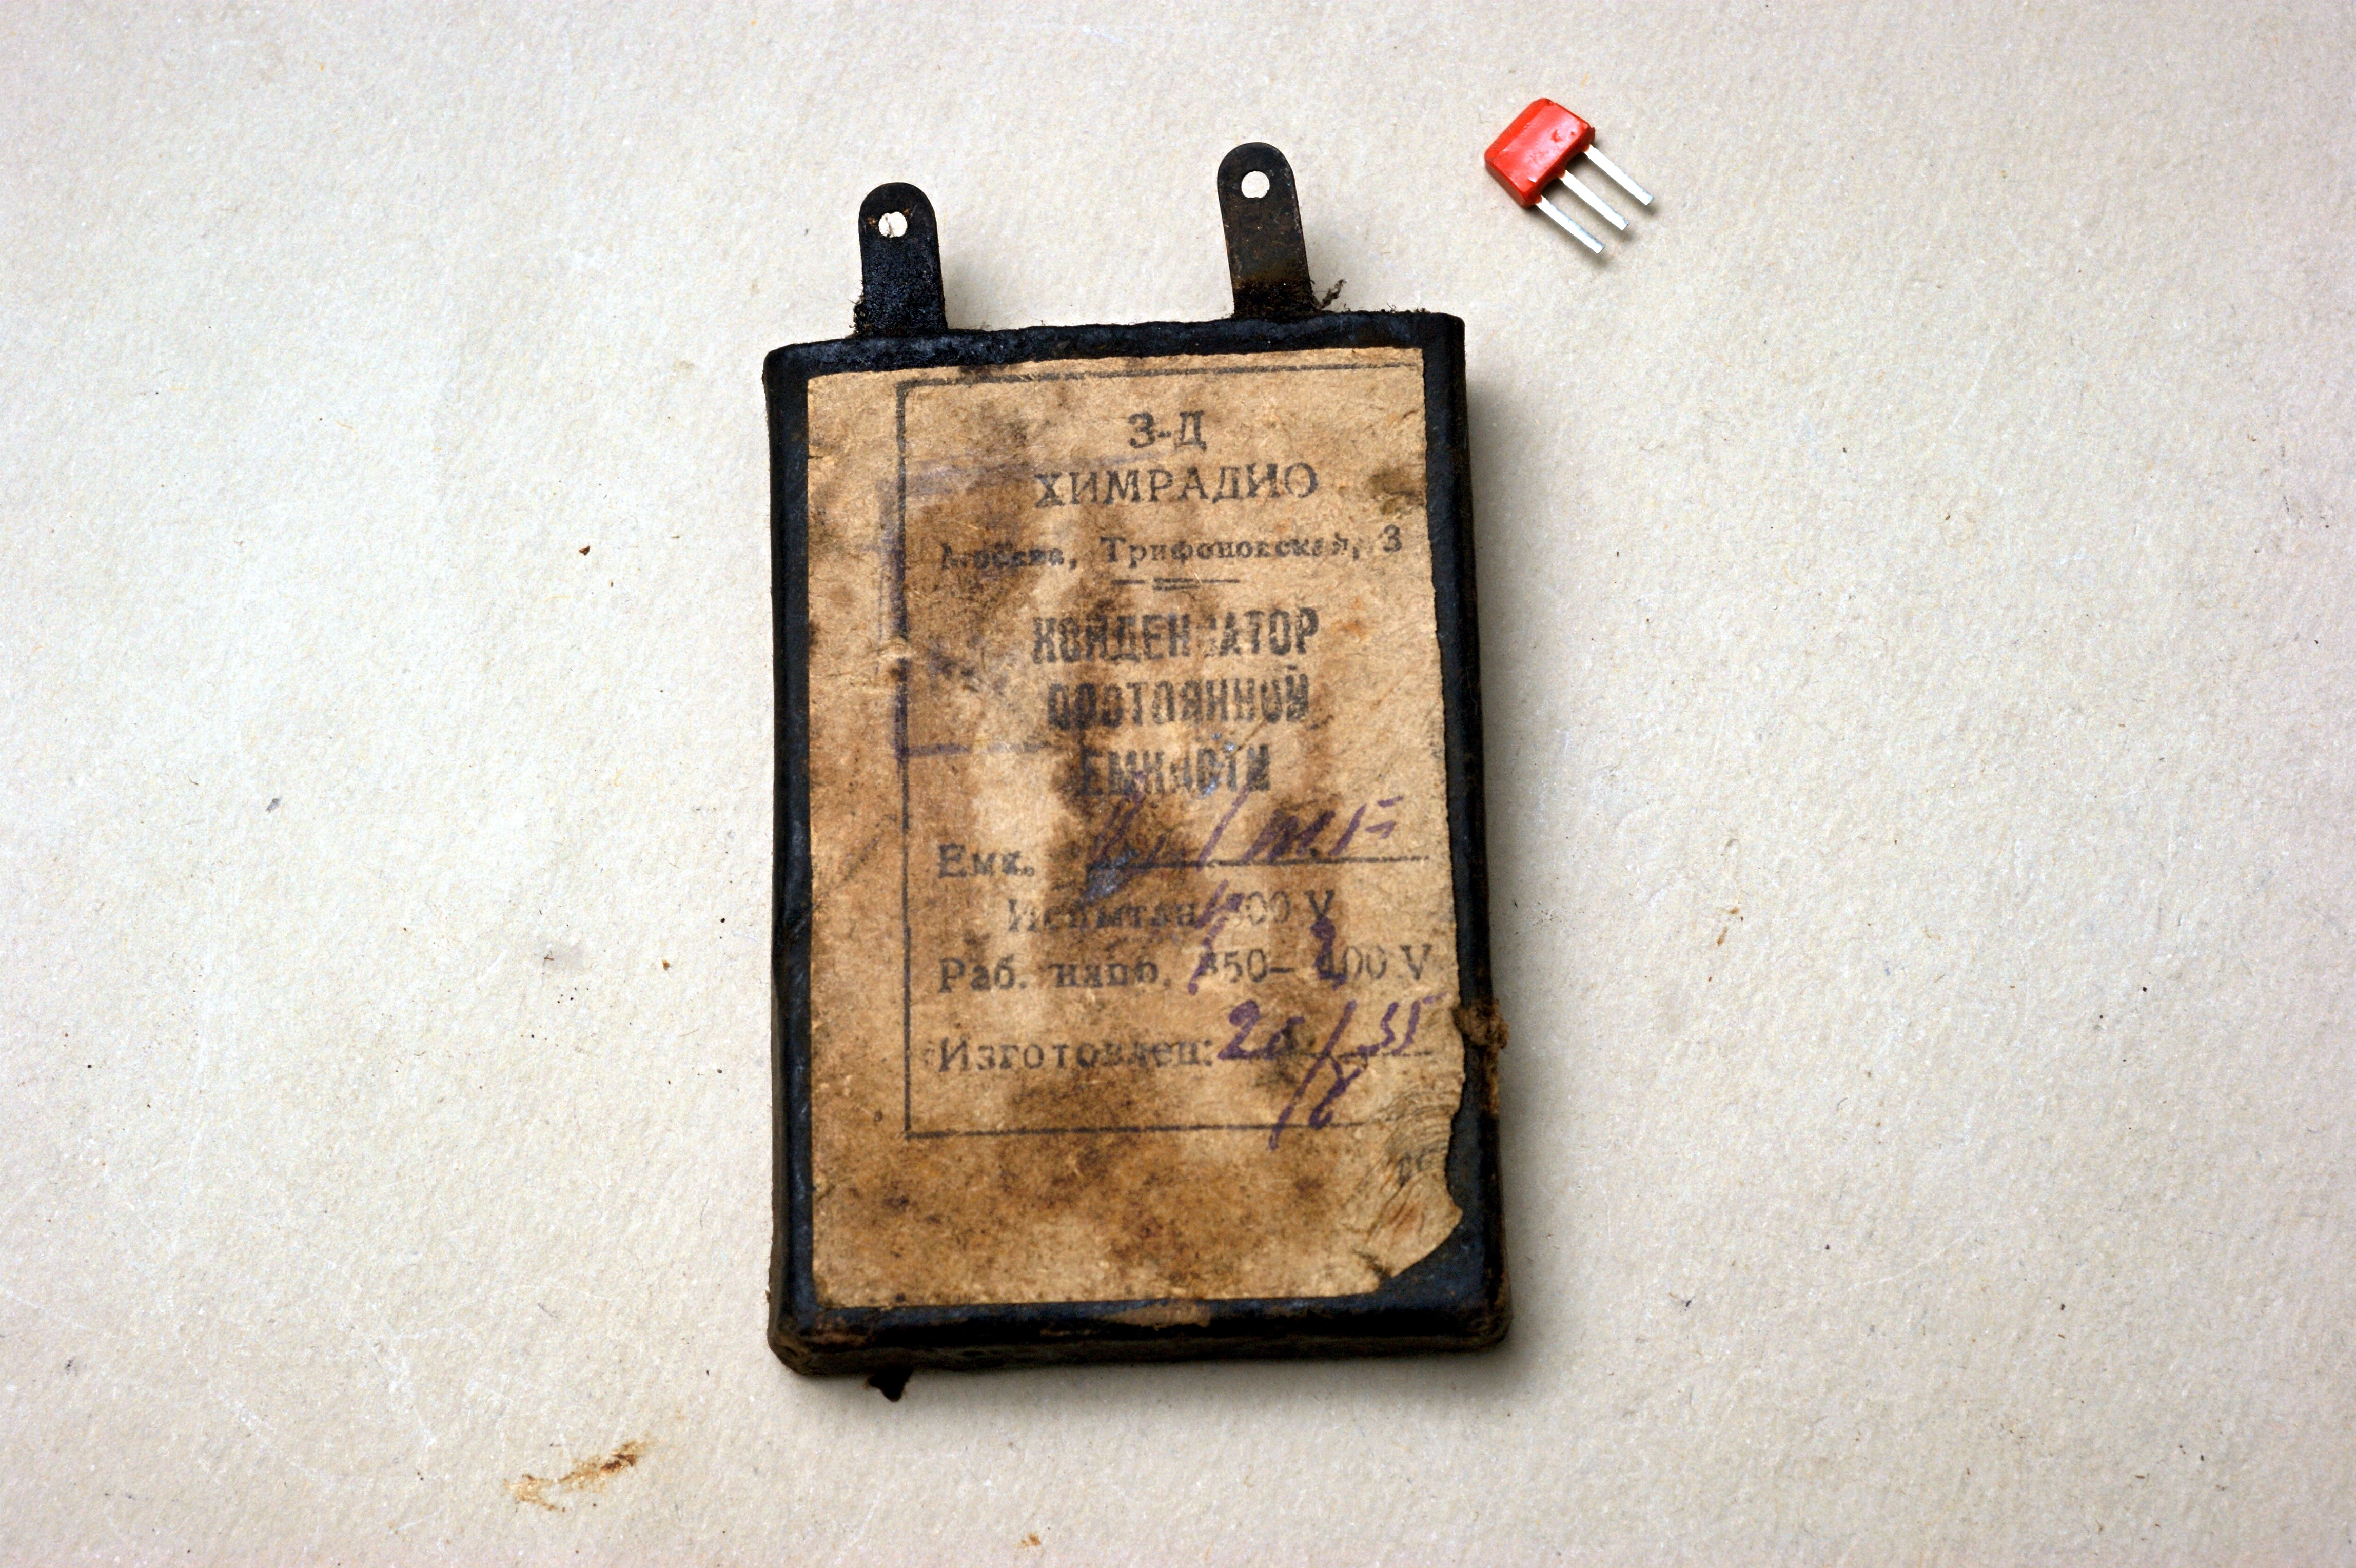 З-Д
ХИМРАДИО
Москва, Трифоновская, 3
КОНДЕНСАТОР
ПОСТОЯННОЙ
ЕМКОСТИ
Емк. m.F
Испытан V
Раб. напр. V
Изготовлен: